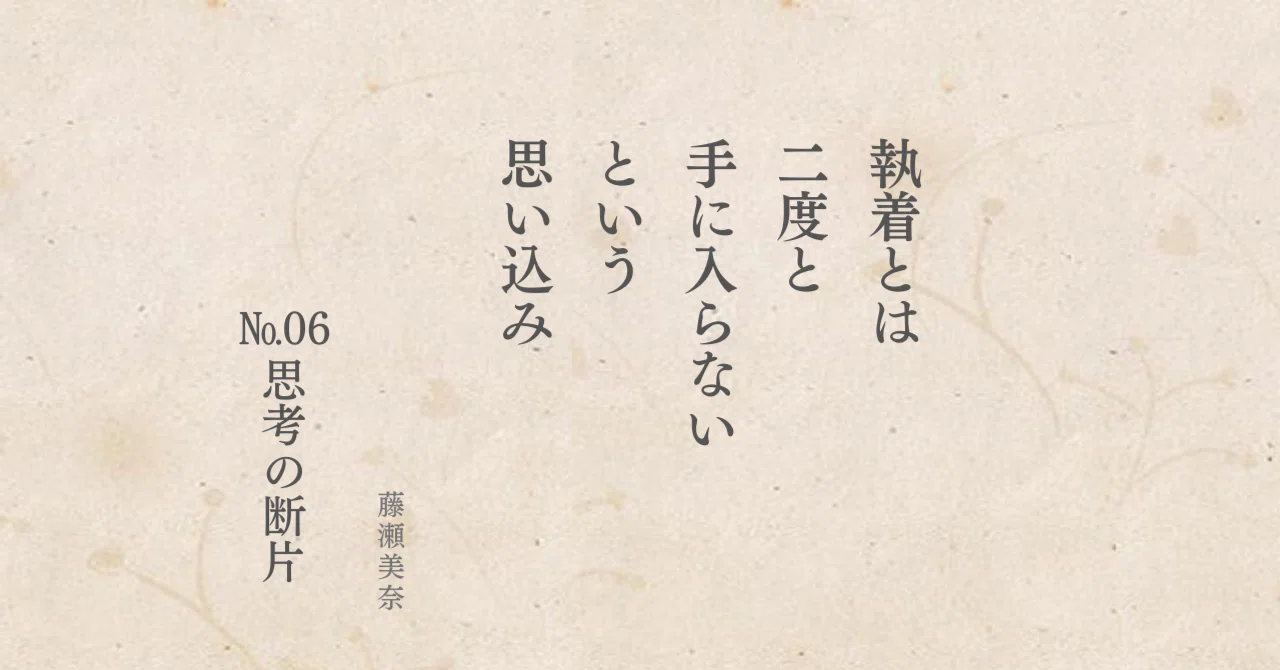 執着とは
二度と
手に入らない
という
思い込み
藤瀬美奈
№06
思考の断片